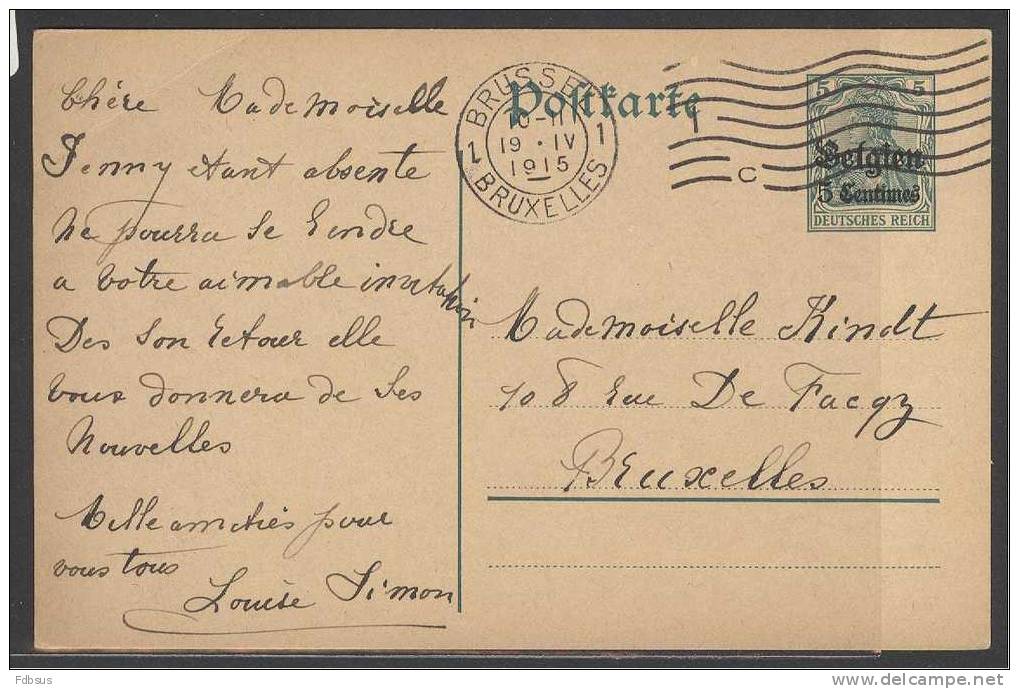 Chère Mademoiselle
Jenny etant absente
ne pourra se rendre
a votre aimable invitation
Des son retour elle
vous donnera de ses
nouvelles
Mille amitiés pour
vous tous
Louise Simon
Postkarte
BRUSSEL
1 1
19 · IV
1915
BRUXELLES
C
5 5
Belgien
5 Centimes
DEUTSCHES REICH
Mademoiselle Kindt
108 rue De Facqz
Bruxelles
Fdbsus
www.delcampe.net